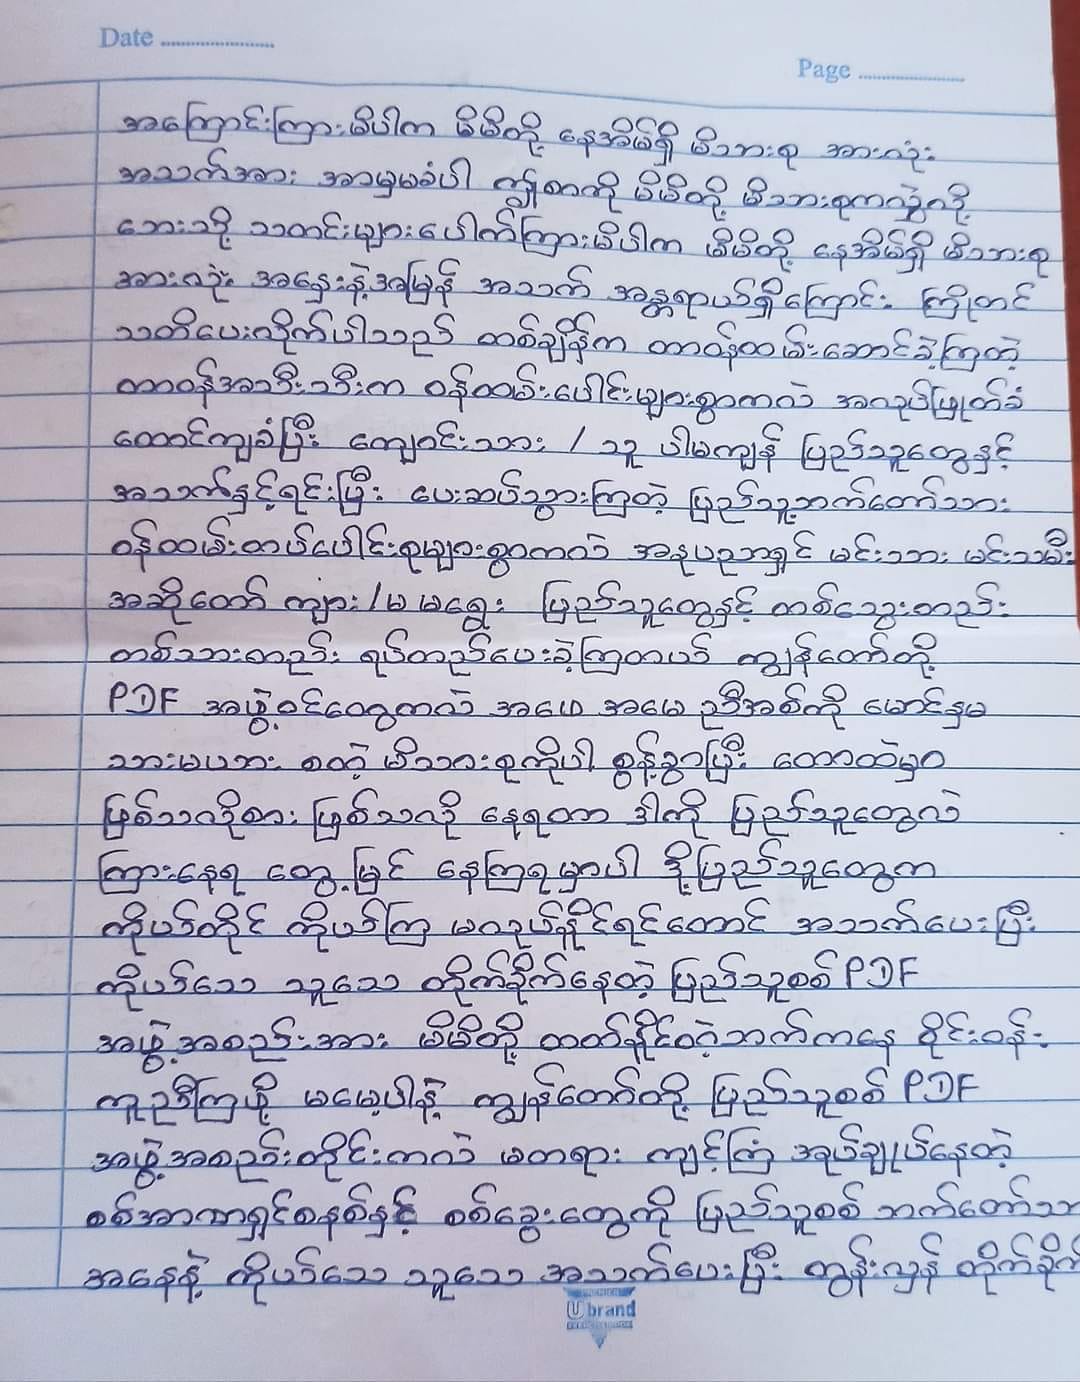 Date
Page
အကြောင်းကြားမိပါက မိမိတို့ နေအိမ်ရှိ မိသားစု အားလုံး
အသက်အား အာမမခံပါ ဤစာကို မိမိတို့ မိသားစုကလွဲလို့
ဘေးသို့ သတင်းများပေါက်ကြားမိပါက မိမိတို့ နေအိမ်ရှိ မိသားစု
အားလုံး အနှေးနဲ့အမြန် အသက် အန္တရာယ်ရှိကြောင်း ကြိုတင်
သတိပေးလိုက်ပါသည် တစ်ချိန်က တာဝန်ထမ်းဆောင်ခဲ့ကြတဲ့
တာဝန်အသီးသီးက ဝန်ထမ်းပေါင်းများစွာကလဲ အလုပ်ဖြုတ်ခံ
ထောင်ကျခံပြီး ကျောင်းသား / သူ ပါမကျန် ပြည်သူတွေနှင့်
အသက်နှင့်ရင်းပြီး ပေးဆပ်သွားကြတဲ့ ပြည်သူ့ဘက်တော်သား
ဝန်ထမ်းတပ်ပေါင်းစုများစွာကလဲ အနုပညာရှင် မင်းသား မင်းသမီး
အဆိုတော် ကျား/မ မရွေး ပြည်သူတွေနှင့် တစ်သွေးတည်း
တစ်သားတည်း ရပ်တည်ပေးခဲ့ကြတယ် ကျွန်တော်တို့
PDF အဖွဲ့ဝင်တွေကလဲ အဖေ အမေ ညီအစ်ကို မောင်နှမ
သားမယား စတဲ့ မိသားစုကိုပါ စွန့်ခွာပြီး တောထဲမှာ
ဖြစ်သလိုစား ဖြစ်သလို နေရတာ ဒါကို ပြည်သူတွေလဲ
ကြားနေရ တွေ့မြင် နေကြရမှာပါ ဒို့ပြည်သူတွေက
ကိုယ်တိုင် ကိုယ်ကြ မလုပ်နိုင်ရင်တောင် အသက်ပေးပြီး
ကိုယ်သေ သူသေ တိုက်ခိုက်နေတဲ့ ပြည်သူ့စစ် PDF
အဖွဲ့အစည်းအား မိမိတို့ တတ်နိုင်တဲ့ဘက်ကနေ ဝိုင်းဝန်း
ကူညီကြဖို့ မမေ့ပါနဲ့ ကျွန်တော်တို့ ပြည်သူ့စစ် PDF
အဖွဲ့အစည်းတိုင်းကလဲ မတရား ကျင့်ကြံ အုပ်ချုပ်နေတဲ့
စစ်အာဏာရှင်စနစ်နှင့် စစ်ခွေးတွေကို ပြည်သူ့စစ် ဘက်တော်သာ
အနေနဲ့ ကိုယ်သေ သူသေ အသက်ပေးပြီး တွန်းလှန် တိုက်ခိုက်
U brand